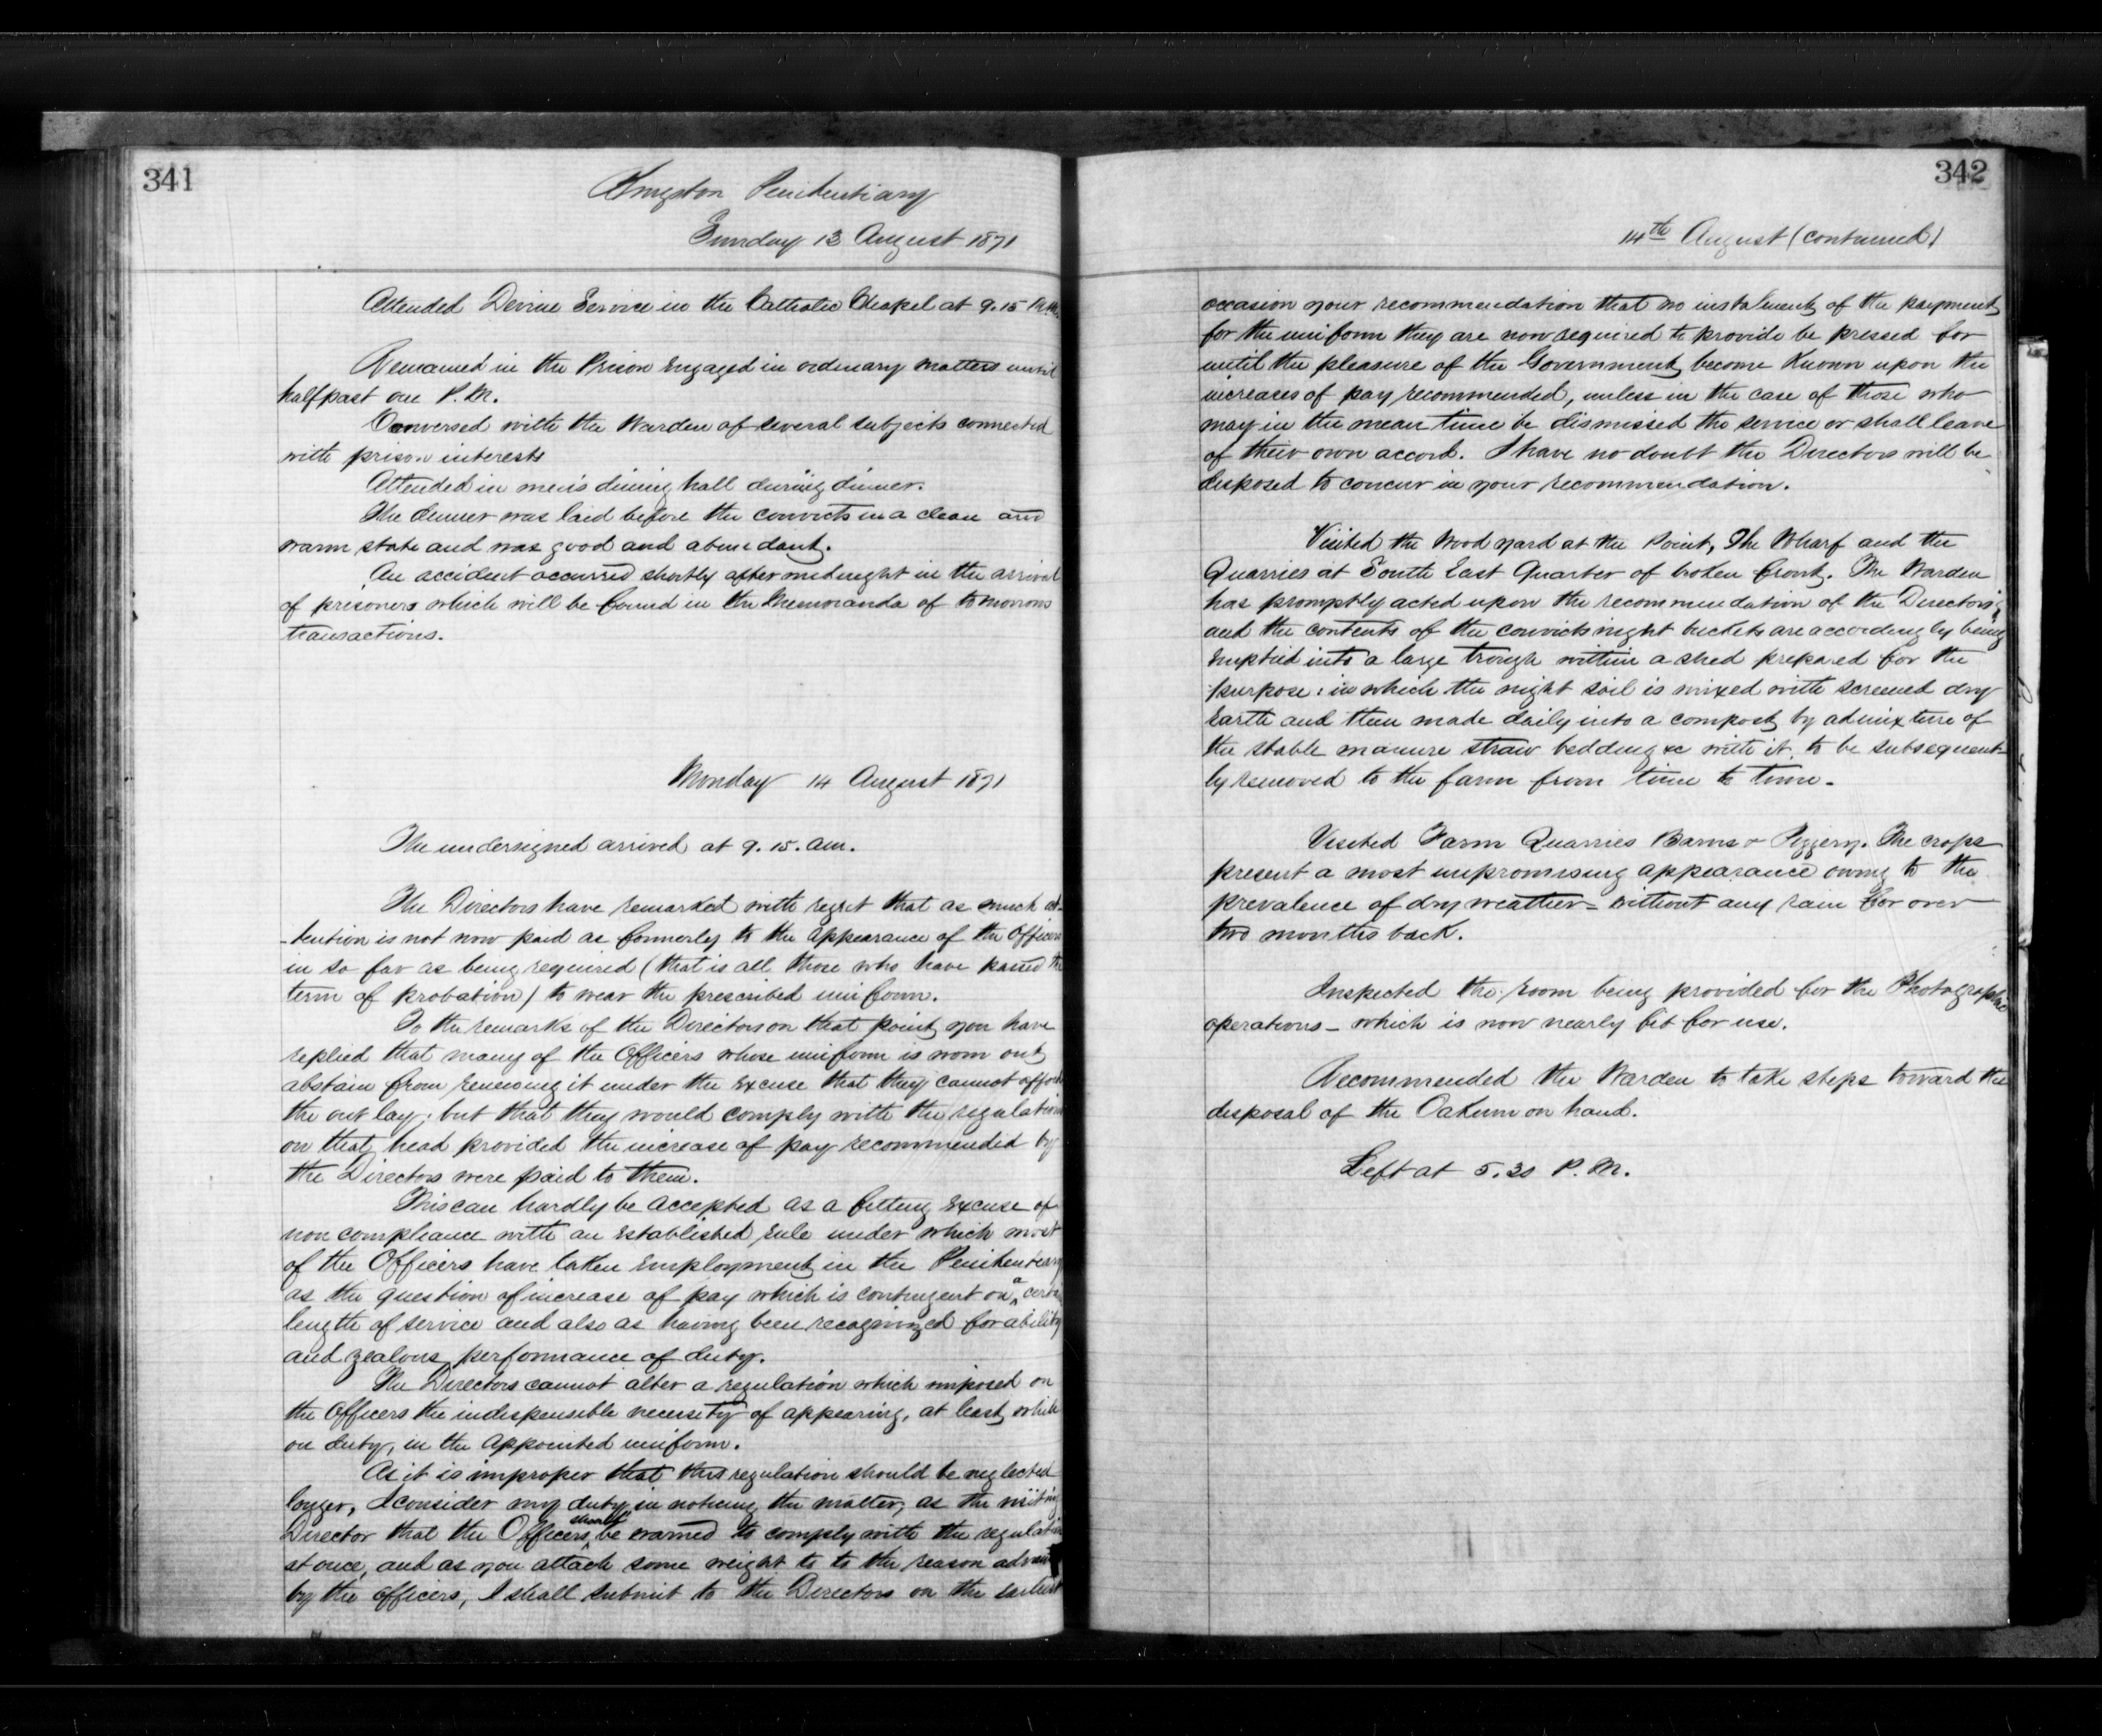 341
Kingston Penitentiary
Sunday 13 August 1871
Attended Divine Service in the Catholic Chapel at 9.15
Remained in the Prison engaged in ordinary matters until
half past one P.M.
Conversed with the Warden of several subjects connected
with prison interests
Attended in men's dining hall during dinner.
The dinner was laid before the convicts in a clean and
warm state and was good and abundant.
An accident occurred shortly after midnight in the arrival
of prisoners which will be found in the Memoranda of tomorrows
transactions.
Monday 14 August 1871
The undersigned arrived at 9.15. am.
The Directors have remarked with regret that as much at-
-tention is not now paid as formerly to the appearance of the Officers
in so far as being required (that is all those who have passed the
term of probation) to wear the prescribed uniform.
To the remarks of the Directors on that point you have
replied that many of the Officers whose uniform is worn out
abstain from renewing it under the excuse that they cannot afford
the out lay; but that they would comply with the regulation
on that head provided the increase of pay recommended by
the Directors were paid to them.
This can hardly be accepted as a fitting excuse of
non compliance with an established rule under which most
of the Officers have taken employment in the Penitentiary
as the question of increase of pay which is contingent on a certain
length of service and also as having been recognized for ability
and zealous performance of duty.
The Directors cannot alter a regulation which imposed on
the Officers the indispensible necessity of appearing, at least while
on duty, in the appointed uniform.
As it is improper that this regulation should be neglected
longer, I consider my duty in noticing the matter, as the visiting
Director that the Officers should be warned to comply with the regulation
at once, and as you attach some weight to to the reason
by the officers, I shall submit to the Directors on the earliest
342
14th August (continued)
occasion your recommendation that no instalment of the payment
for the uniform they are now required to provide be pressed for
until the pleasure of the Government become known upon the
increases of pay recommended, unless in the case of those who
may in the mean time be dismissed the service or shall leave
of their own accord. I have no doubt the Directors will be
disposed to concur in your recommendation.
Visited the Wood yard at the Point, The Wharf and the
Quarries at South East Quarter of broken front. The Warden
has promptly acted upon the recommendation of the Directors;
and the contents of the convicts night buckets are accordingly being
emptied into a large trough within a shed prepared for the
purpose: in which the night soil is mixed with screened dry
Earth and then made daily into a compost by admixture of
the stable manure straw bedding &c with it to be subsequent-
ly removed to the farm from time to time.
Visited Farm Quarries Barns & Piggery. The crops
present a most unpromising appearance owing to the
prevalence of dry weather - without any rain for over
two months back.
Inspected the room being provided for the Photographic
operations - which is now nearly fit for use.
Recommended the Warden to take steps toward the
disposal of the Oakum on hand.
Left at 5.30 P.M.